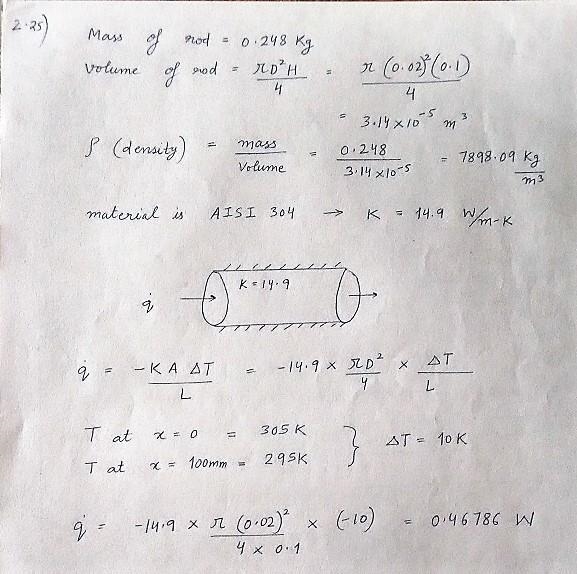 2.25)
Mass of rod = 0.248 Kg
Volume of rod = πD²H/4 = π(0.02)²(0.1)/4
= 3.14 x 10⁻⁵ m³
ρ (density) = mass/Volume = 0.248/3.14 x10⁻⁵ = 7898.09 Kg/m³
material is AISI 304 → K = 14.9 W/m-K
K = 14.9
q̇
q̇ = -KAΔT/L = -14.9 x πD²/4 x ΔT/L
T at x = 0 = 305 K } ΔT = 10K
T at x = 100mm = 295K
q̇ = -14.9 x π(0.02)²/4 x 0.1 x (-10) = 0.46786 W